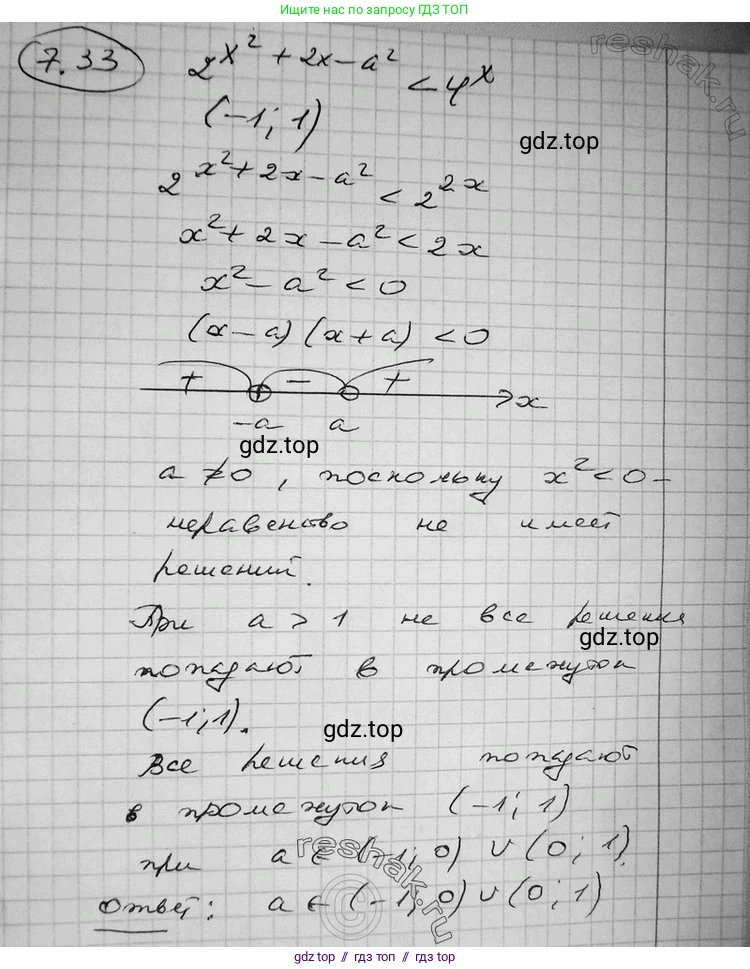 Ищите нас в интернете по запросу ГДЗ ТОП
7.33
2^{x^2 + 2x - a^2} < 4^x
reshak.ru
(-1; 1)
gdz.top
2^{x^2 + 2x - a^2} < 2^{2x}
x^2 + 2x - a^2 < 2x
x^2 - a^2 < 0
(x - a) (x + a) < 0
+ - + x
-a a
gdz.top
a ≠ 0, поскольку x^2 < 0 -
неравенство не имеет
решений.
При a > 1 не все решения
gdz.top
попадают в промежуток
(-1; 1).
gdz.top
Все решения попадают
в промежуток (-1; 1)
при a ∈ (-1; 0) ∪ (0; 1).
reshak.ru
Ответ: a ∈ (-1; 0) ∪ (0; 1)
gdz.top // гдз топ // гдз.top